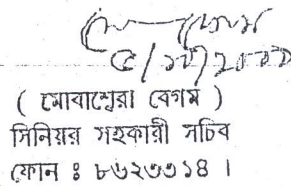 ( মোবাশ্বেরা বেগম )
সিনিয়র সহকারী সচিব
ফোন ঃ ৮৬২৩৩১৪ ।